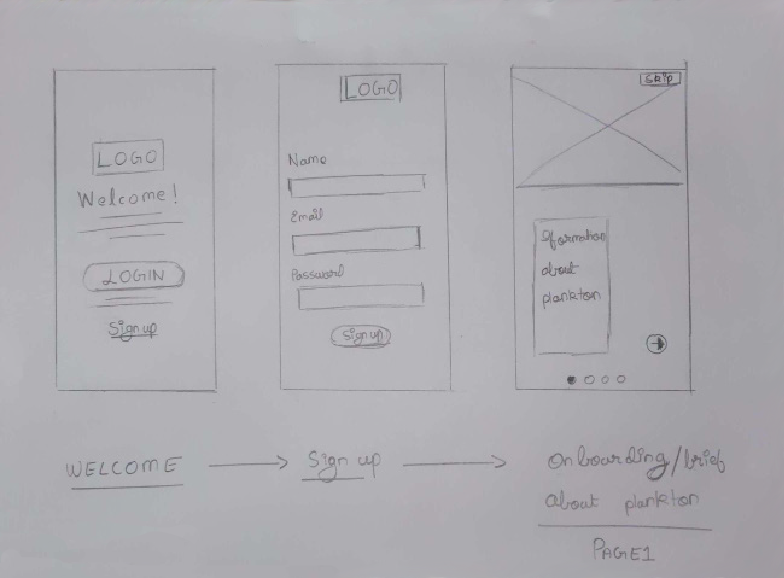 LOGO
Welcome!
LOGIN
Sign up
LOGO
Name
Email
Password
Sign up
Skip
Iformation
about
plankton
WELCOME
Sign up
Onboarding/brief
about plankton
PAGE1